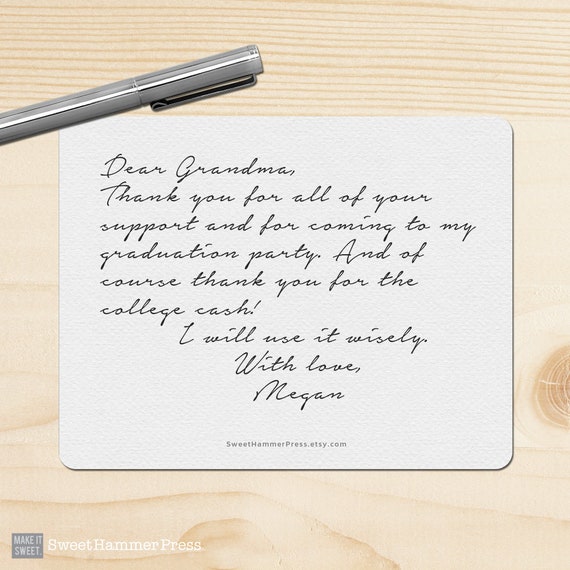 Dear Grandma,
Thank you for all of your
support and for coming to my
graduation party. And of
course thank you for the
college cash!
I will use it wisely.
With love,
Megan
SweetHammerPress.etsy.com
MAKE IT
SWEET.
SweetHammerPress